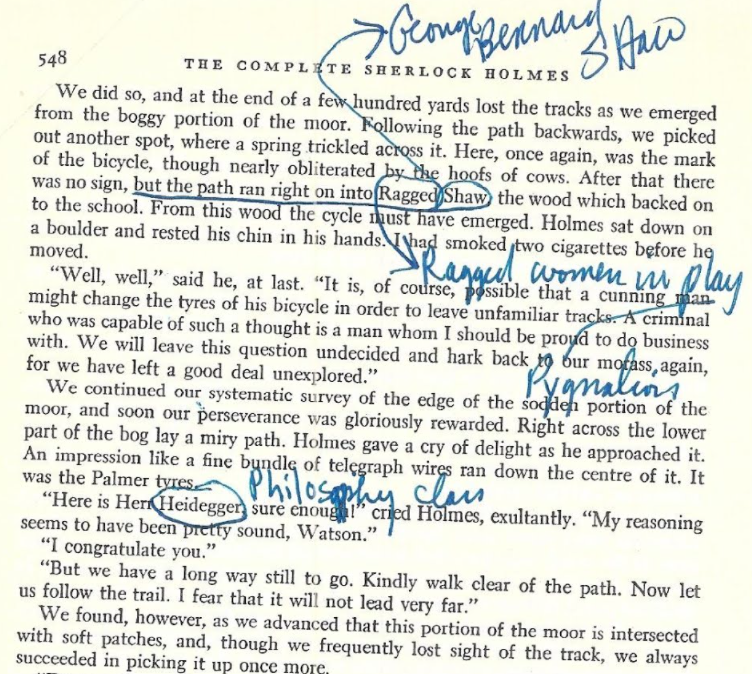 George Bernard Shaw
548
THE COMPLETE SHERLOCK HOLMES
We did so, and at the end of a few hundred yards lost the tracks as we emerged
from the boggy portion of the moor. Following the path backwards, we picked
out another spot, where a spring trickled across it. Here, once again, was the mark
of the bicycle, though nearly obliterated by the hoofs of cows. After that there
was no sign, but the path ran right on into Ragged Shaw, the wood which backed on
to the school. From this wood the cycle must have emerged. Holmes sat down on
a boulder and rested his chin in his hands. I had smoked two cigarettes before he
moved.
Ragged women in play
“Well, well,” said he, at last. “It is, of course, possible that a cunning man
might change the tyres of his bicycle in order to leave unfamiliar tracks. A criminal
who was capable of such a thought is a man whom I should be proud to do business
with. We will leave this question undecided and hark back to our morass again,
for we have left a good deal unexplored.”
Pygmalion
We continued our systematic survey of the edge of the sodden portion of the
moor, and soon our perseverance was gloriously rewarded. Right across the lower
part of the bog lay a miry path. Holmes gave a cry of delight as he approached it.
An impression like a fine bundle of telegraph wires ran down the centre of it. It
was the Palmer tyres.
Philosophy class
“Here is Herr Heidegger, sure enough!” cried Holmes, exultantly. “My reasoning
seems to have been pretty sound, Watson.”
“I congratulate you.”
“But we have a long way still to go. Kindly walk clear of the path. Now let
us follow the trail. I fear that it will not lead very far.”
We found, however, as we advanced that this portion of the moor is intersected
with soft patches, and, though we frequently lost sight of the track, we always
succeeded in picking it up once more.